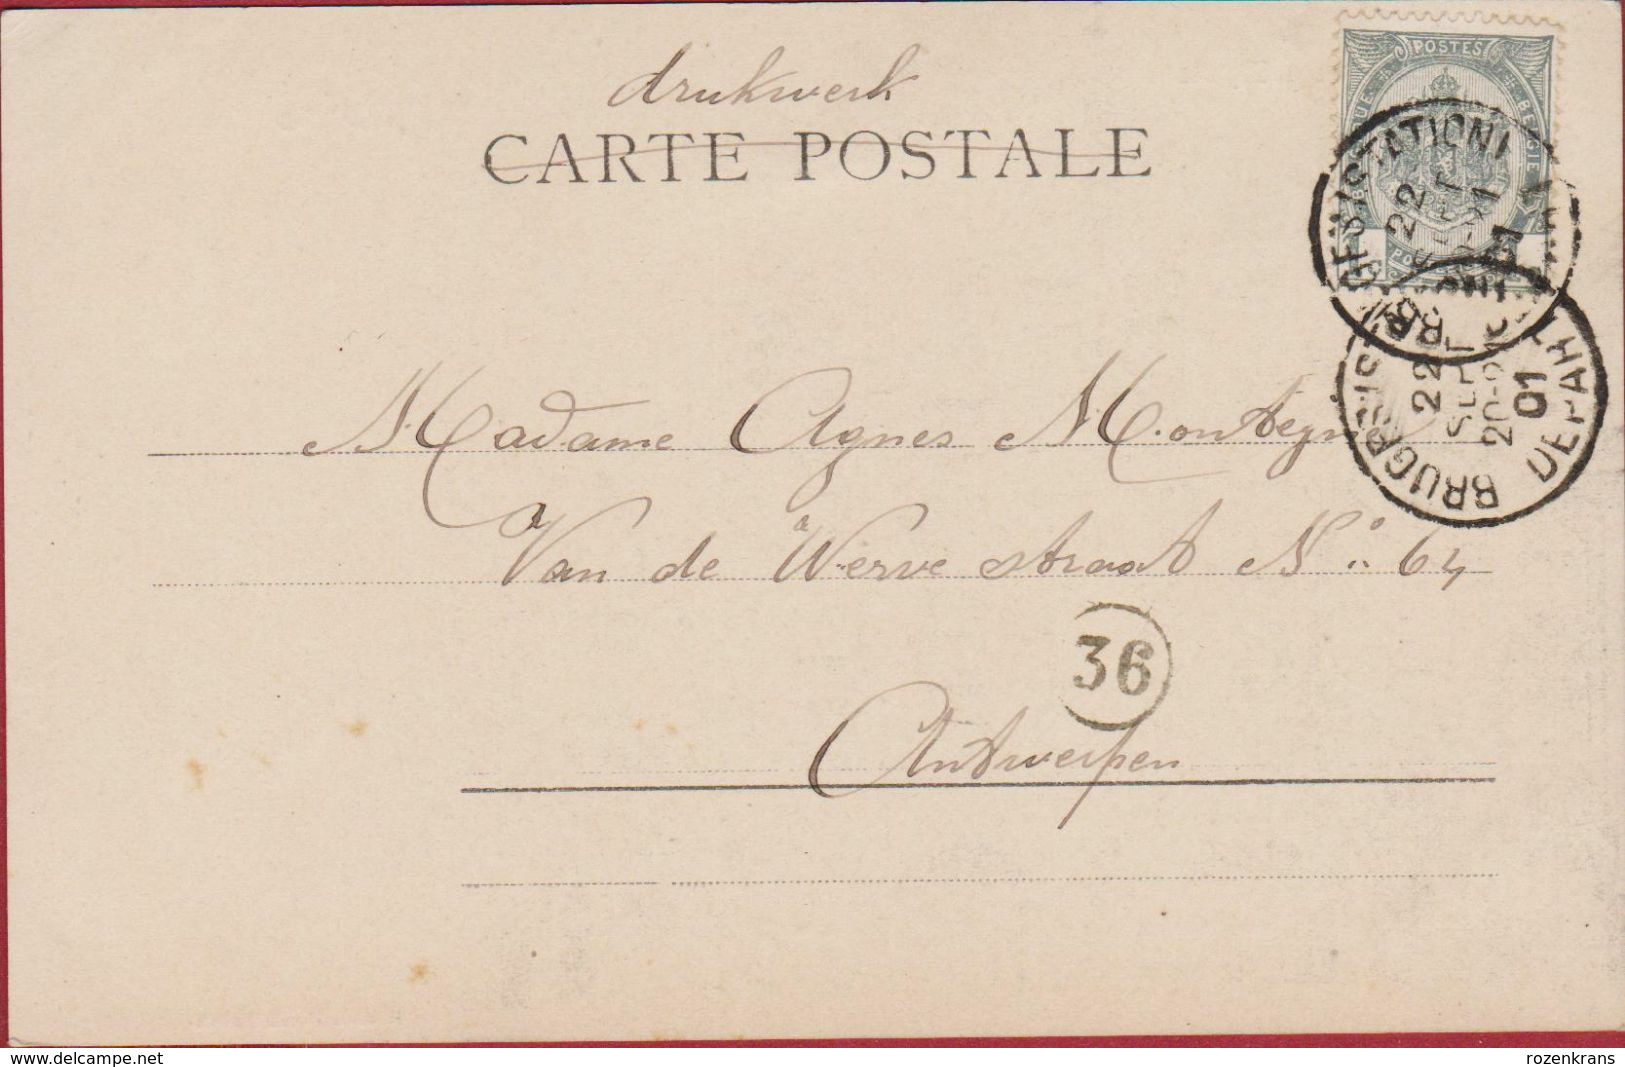 drukwerk
CARTE POSTALE
POSTES
BELGIE
STATION
22
BRUGES STATION
DEPART
22 SEPT 01
Madame Agnes
Van de Werve straat N° 64
36
Antwerpen
delcampe.net
rozenkrans